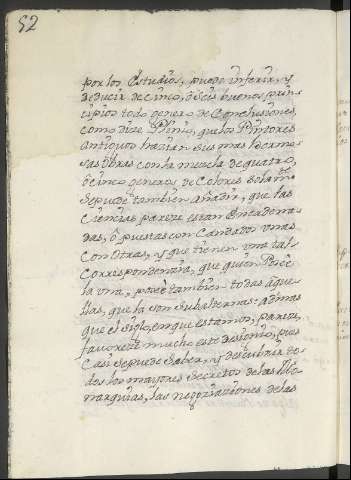 52
por los Estudios, puede inferir, y
deducir de cinco, ò seis buenos prin
cipios todo genero de Conclusiones,
como dize Plinio, que los Pintores
antiguos hazian sus mas hermo
sas obras con la mezcla de quatro,
ò cinco generos de Colores solam.te
se puede tambien añadir, que las
Ciencias parece estan encadena
das, ò puestas con Candados unas
con otras, y que tienen una tal
correspondencia, que quien posèe
la una, posèe tambien todas aque
llas, que la son subalternas: ademas
que el siglo, en que estamos, parece,
favorece mucho este designio, pues
casi se puede saber, y descubrir to
dos los mayores secretos de las Mo
narquias, las negociaciones de las